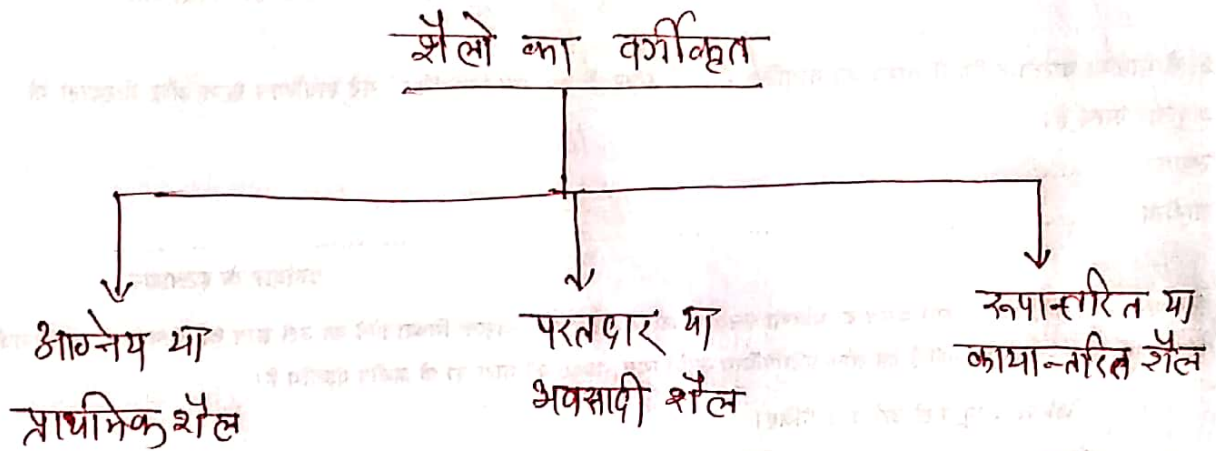 शैलो का वर्गीकृत
आग्नेय या
प्राथमिक शैल
परतदार या
अवसादी शैल
रूपान्तरित या
कायान्तरित शैल